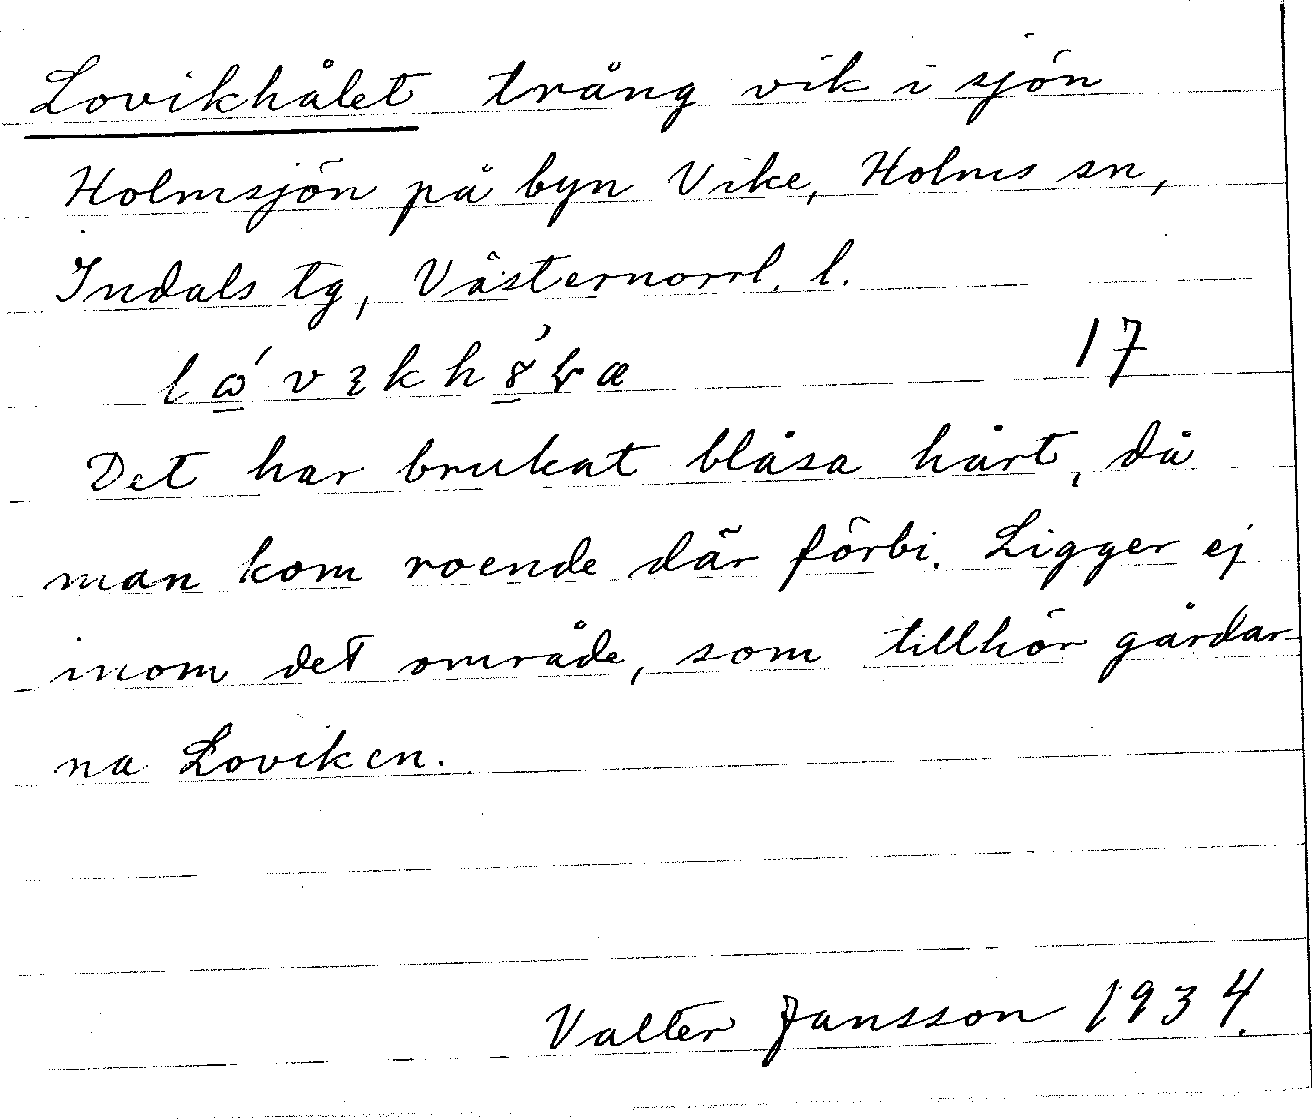 Lovikhålet trång vik i sjön
Holmsjön på byn Vike, Holms sn,
Indals tg, Västernorrl. l.
17
Det har brukat blåsa hårt, då
man kom roende där förbi. Ligger ej
inom det område, som tillhör gårdar-
na Loviken.
Valter Jansson 1934.